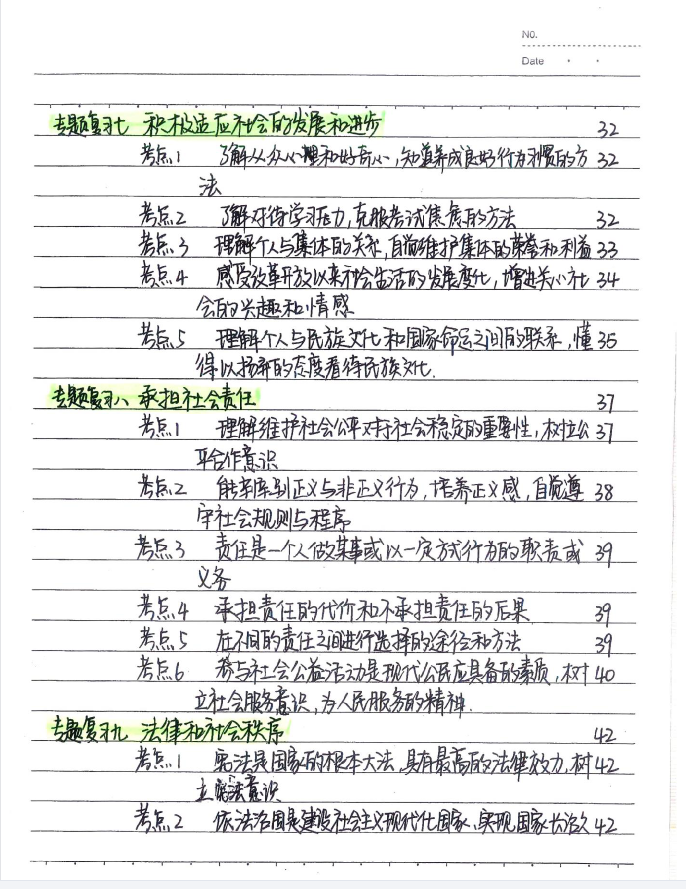 No.
Date
专题复习七 积极适应社会的发展和进步 32
考点1 了解从众心理和好奇心,知道养成良好行为习惯的方 32
法
考点2 了解对待学习压力,克服考试焦虑的方法 32
考点3 理解个人与集体的关系,自觉维护集体的荣誉和利益 33
考点4 感受改革开放以来社会生活的发展变化,增进关心社 34
会的兴趣和情感
考点5 理解个人与民族文化和国家命运之间的联系,懂 35
得以扬弃的态度看待民族文化.
专题复习八 承担社会责任 37
考点1 理解维护社会公平对于社会稳定的重要性,树立公 37
平合作意识
考点2 能够辨别正义与非正义行为,培养正义感,自觉遵 38
守社会规则与程序
考点3 责任是一个人做某事或以一定方式行为的职责或 39
义务
考点4 承担责任的代价和不承担责任的后果 39
考点5 在不同的责任之间进行选择的途径和方法 39
考点6 参与社会公益活动是现代公民应具备的素质,树 40
立社会服务意识,为人民服务的精神.
专题复习九 法律和社会秩序 42
考点1 宪法是国家的根本大法,具有最高的法律效力,树 42
立宪法意识
考点2 依法治国是建设社会主义现代化国家、实现国家长治久 42